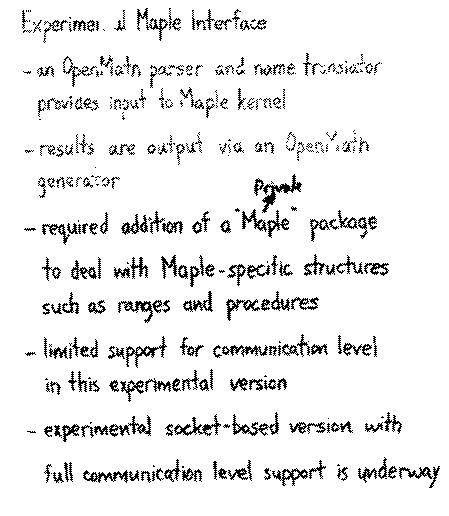 Experimental Maple Interface
- an OpenMath parser and name translator
provides input to Maple kernel
- results are output via an OpenMath
generator
Private
- required addition of a "Maple" package
to deal with Maple-specific structures
such as ranges and procedures
- limited support for communication level
in this experimental version
- experimental socket-based version with
full communication level support is underway